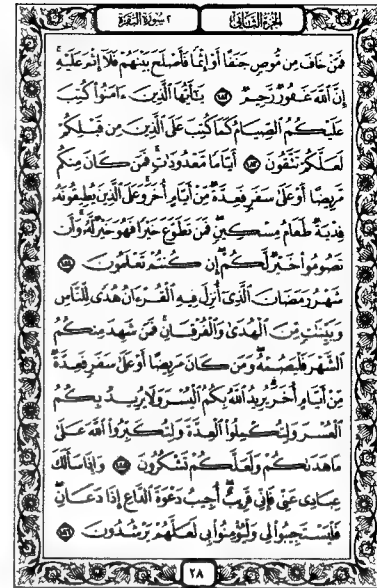 الجزء الثاني
٢ سورة البقرة
فَمَنْ خَافَ مِن مُّوصٍ جَنَفًا أَوْ إِثْمًا فَأَصْلَحَ بَيْنَهُمْ فَلَآ إِثْمَ عَلَيْهِ
إِنَّ ٱللَّهَ غَفُورٌ رَّحِيمٌ ١٨٢ يَـٰٓأَيُّهَا ٱلَّذِينَ ءَامَنُوا۟ كُتِبَ
عَلَيْكُمُ ٱلصِّيَامُ كَمَا كُتِبَ عَلَى ٱلَّذِينَ مِن قَبْلِكُمْ
لَعَلَّكُمْ تَتَّقُونَ ١٨٣ أَيَّامًا مَّعْدُودَٰتٍ فَمَن كَانَ مِنكُم
مَّرِيضًا أَوْ عَلَىٰ سَفَرٍ فَعِدَّةٌ مِّنْ أَيَّامٍ أُخَرَ وَعَلَى ٱلَّذِينَ يُطِيقُونَهُۥ
فِدْيَةٌ طَعَامُ مِسْكِينٍ فَمَن تَطَوَّعَ خَيْرًا فَهُوَ خَيْرٌ لَّهُۥ وَأَن
تَصُومُوا۟ خَيْرٌ لَّكُمْ إِن كُنتُمْ تَعْلَمُونَ ١٨٤
شَهْرُ رَمَضَانَ ٱلَّذِىٓ أُنزِلَ فِيهِ ٱلْقُرْءَانُ هُدًى لِّلنَّاسِ
وَبَيِّنَـٰتٍ مِّنَ ٱلْهُدَىٰ وَٱلْفُرْقَانِ فَمَن شَهِدَ مِنكُمُ
ٱلشَّهْرَ فَلْيَصُمْهُ وَمَن كَانَ مَرِيضًا أَوْ عَلَىٰ سَفَرٍ فَعِدَّةٌ
مِّنْ أَيَّامٍ أُخَرَ يُرِيدُ ٱللَّهُ بِكُمُ ٱلْيُسْرَ وَلَا يُرِيدُ بِكُمُ
ٱلْعُسْرَ وَلِتُكْمِلُوا۟ ٱلْعِدَّةَ وَلِتُكَبِّرُوا۟ ٱللَّهَ عَلَىٰ
مَا هَدَىٰكُمْ وَلَعَلَّكُمْ تَشْكُرُونَ ١٨٥ وَإِذَا سَأَلَكَ
عِبَادِى عَنِّى فَإِنِّى قَرِيبٌ أُجِيبُ دَعْوَةَ ٱلدَّاعِ إِذَا دَعَانِ
فَلْيَسْتَجِيبُوا۟ لِى وَلْيُؤْمِنُوا۟ بِى لَعَلَّهُمْ يَرْشُدُونَ ١٨٦
٢٨